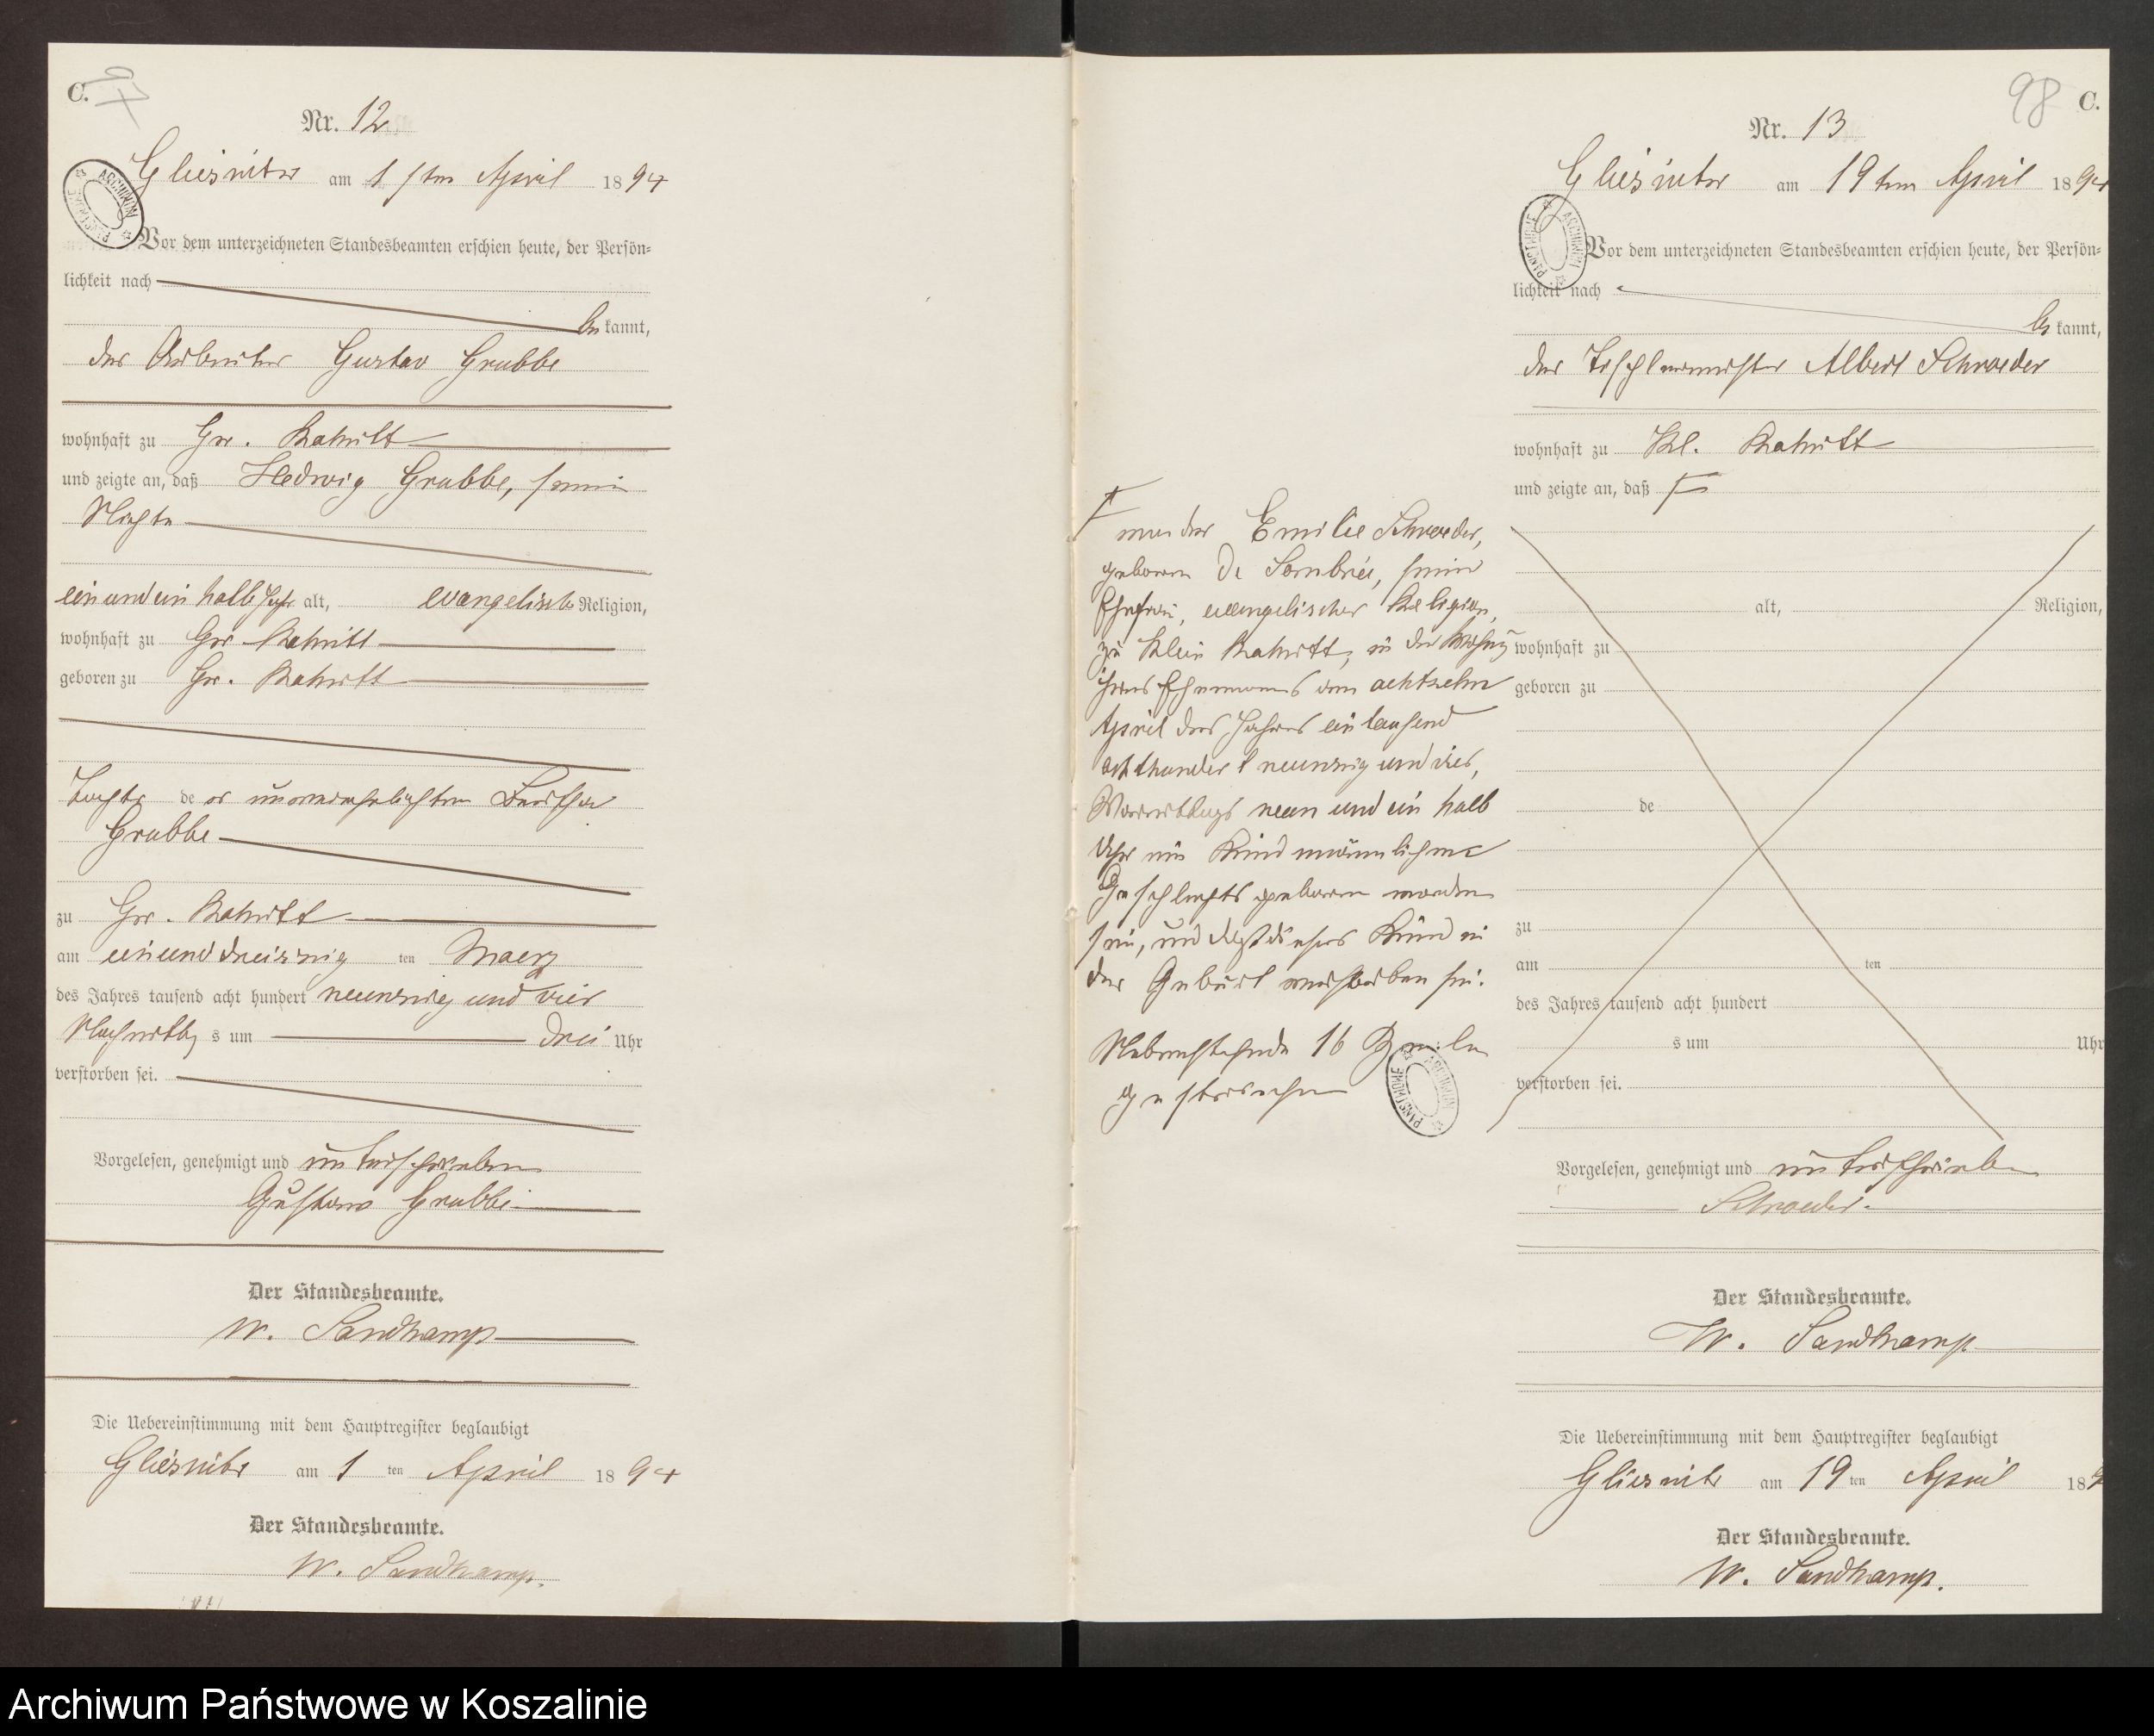 C.
Nr. 12
Gliesnitz am 1 sten April 1894
ARCHIWUM PAŃSTWOWE
Vor dem unterzeichneten Standesbeamten erschien heute, der Persön=
lichkeit nach
bekannt,
der Arbeiter Gustav Grabbe
wohnhaft zu Gr.
und zeigte an, daß Hedwig Grabbe, seine
Nichte
ein und ein halb Jahr alt, evangelischer Religion,
wohnhaft zu Gr.
geboren zu Gr.
Tochter der unverehelichten Bertha
Grabbe
zu Gr.
am einunddreiszig ten Maerz
des Jahres tausend acht hundert neunzig und vier
Nachmittags um drei Uhr
verstorben sei.
Vorgelesen, genehmigt und unterschrieben
Gustav Grabbe
Der Standesbeamte.
W. Sandkamp
Die Uebereinstimmung mit dem Hauptregister beglaubigt
Gliesnitz am 1 ten April 1894
Der Standesbeamte.
W. Sandkamp.
98 C.
Nr. 13
Gliesnitz am 19 ten April 1894
ARCHIWUM PAŃSTWOWE
Vor dem unterzeichneten Standesbeamten erschien heute, der Persön=
lichkeit nach
bekannt,
der Tischlermeister Albert Schroeder
wohnhaft zu Kl.
und zeigte an, daß
von der Emilie Schroeder,
geboren De Sombrée, seine
Ehefrau, evangelischer Religion,
zu Klein in der Wohnung
ihres Ehemannes am achtzehn
April des Jahres eintausend
achthundert neunzig und vier,
Vormittags neun und ein halb
Uhr ein Kind männlichen
Geschlechts geboren worden
sei, und daß dieses Kind in
der Geburt verstorben sei.
Nebenstehende 16 Zeilen
gestrichen
ARCHIWUM PAŃSTWOWE
alt, Religion,
wohnhaft zu
geboren zu
de
zu
am ten
des Jahres tausend acht hundert
s um Uhr
verstorben sei.
Vorgelesen, genehmigt und unterschrieben
Schroeder.
Der Standesbeamte.
W. Sandkamp
Die Uebereinstimmung mit dem Hauptregister beglaubigt
Gliesnitz am 19 ten April 189
Der Standesbeamte.
W. Sandkamp.
Archiwum Państwowe w Koszalinie